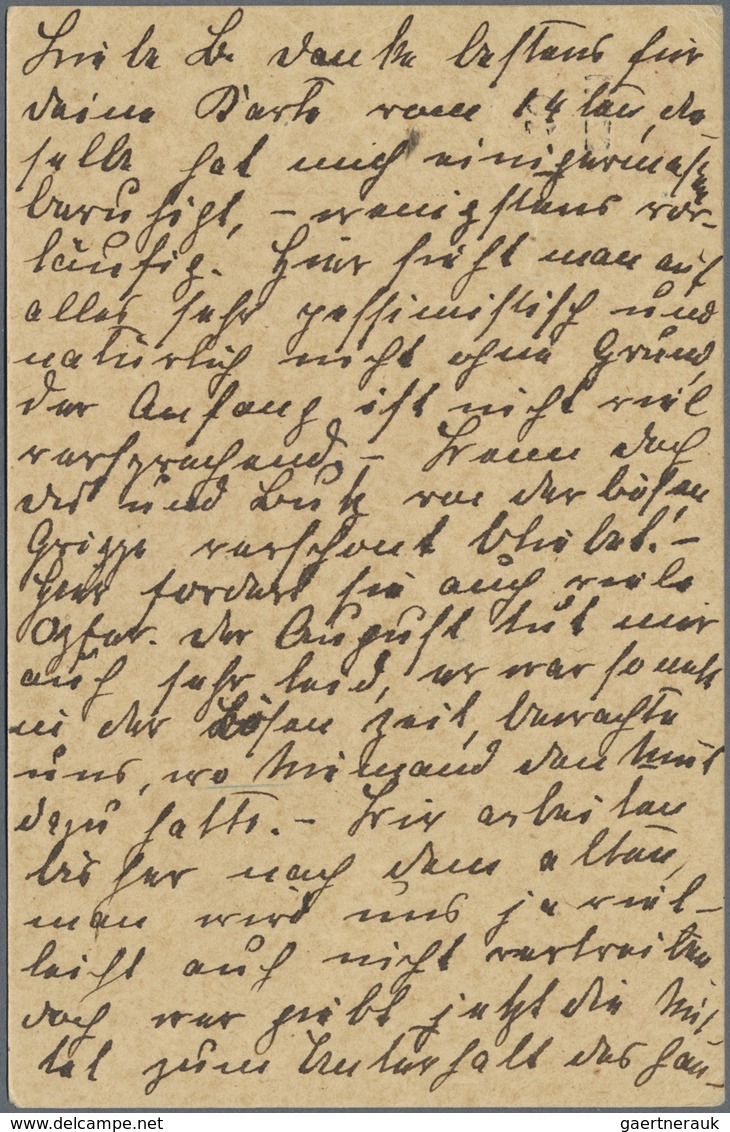 Liebe B. danke bestens für
deine Karte vom 14 ten, die-
selbe hat mich einigermaßen
beruhigt, - wenigstens vor-
läufig. Hier sieht man auf
alles sehr pessimistisch und
natürlich nicht ohne Grund,
der Anfang ist nicht viel
versprechend. - Wenn doch
du und Butz von der bösen
Grippe verschont bliebet! -
Hier fordert sie auch viele
Opfer. Der August tut mir
auch sehr leid, er war so nett
in der bösen Zeit, bewachte
uns, wo Niemand den Mut
dazu hatte. - Wir arbeiten
bis her nach dem alten,
man wird uns ja viel-
leicht auch nicht vertreiben
doch wer giebt jetzt die Mit
tel zum Unterhalt des Hau-
delcampe.net
gaertnerauk